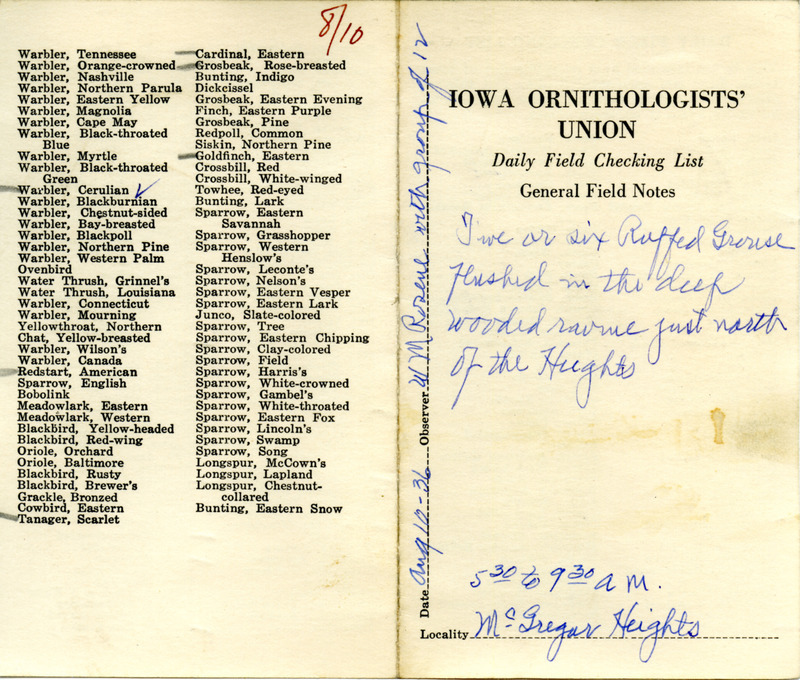 8/10
Warbler, Tennessee
Warbler, Orange-crowned
Warbler, Nashville
Warbler, Northern Parula
Warbler, Eastern Yellow
Warbler, Magnolia
Warbler, Cape May
Warbler, Black-throated
Blue
Warbler, Myrtle
Warbler, Black-throated
Green
Warbler, Cerulian
Warbler, Blackburnian
Warbler, Chestnut-sided
Warbler, Bay-breasted
Warbler, Blackpoll
Warbler, Northern Pine
Warbler, Western Palm
Ovenbird
Water Thrush, Grinnel's
Water Thrush, Louisiana
Warbler, Connecticut
Warbler, Mourning
Yellowthroat, Northern
Chat, Yellow-breasted
Warbler, Wilson's
Warbler, Canada
Redstart, American
Sparrow, English
Bobolink
Meadowlark, Eastern
Meadowlark, Western
Blackbird, Yellow-headed
Blackbird, Red-wing
Oriole, Orchard
Oriole, Baltimore
Blackbird, Rusty
Blackbird, Brewer's
Grackle, Bronzed
Cowbird, Eastern
Tanager, Scarlet
Cardinal, Eastern
Grosbeak, Rose-breasted
Bunting, Indigo
Dickcissel
Grosbeak, Eastern Evening
Finch, Eastern Purple
Grosbeak, Pine
Redpoll, Common
Siskin, Northern Pine
Goldfinch, Eastern
Crossbill, Red
Crossbill, White-winged
Towhee, Red-eyed
Bunting, Lark
Sparrow, Eastern
Savannah
Sparrow, Grasshopper
Sparrow, Western
Henslow's
Sparrow, Leconte's
Sparrow, Nelson's
Sparrow, Eastern Vesper
Sparrow, Eastern Lark
Junco, Slate-colored
Sparrow, Tree
Sparrow, Eastern Chipping
Sparrow, Clay-colored
Sparrow, Field
Sparrow, Harris's
Sparrow, White-crowned
Sparrow, Gambel's
Sparrow, White-throated
Sparrow, Eastern Fox
Sparrow, Lincoln's
Sparrow, Swamp
Sparrow, Song
Longspur, McCown's
Longspur, Lapland
Longspur, Chestnut-
collared
Bunting, Eastern Snow
Date Aug 10-36 Observer W M Rosene with group of 12
IOWA ORNITHOLOGISTS'
UNION
Daily Field Checking List
General Field Notes
Five or six Ruffed Grouse
flushed in the deep
wooded ravine just north
of the Heights
5 30 to 9 30 a m.
Locality McGregor Heights